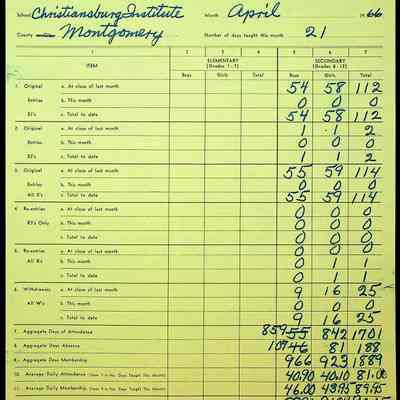 School Christiansburg Institute Month April 1966
County Montgomery Number of days taught this month 21
1 2 3 4 5 6 7
ITEM ELEMENTARY (Grades 1 - 7) SECONDARY (Grades 8 - 12)
Boys Girls Total Boys Girls Total
1. Original a. At close of last month 54 58 112
Entries b. This month 0 0 0
E1's c. Total to date 54 58 112
2. Original a. At close of last month 1 1 2
Entries b. This month 0 0 0
E2's c. Total to date 1 1 2
3. Original a. At close of last month 55 59 114
Entries b. This month 0 0 0
All E's c. Total to date 55 59 114
4. Re-entries a. At close of last month 0 0 0
R1's Only b. This month 0 0 0
c. Total to date 0 0 0
5. Re-entries a. At close of last month 0 1 1
All R's b. This month 0 0 0
c. Total to date 0 1 1
6. Withdrawals a. At close of last month 9 16 25
All W's b. This month 0 0 0
c. Total to date 9 16 25
7. Aggregate Days of Attendance 859 842 1701
8. Aggregate Days Absence 107 81 188
9. Aggregate Days Membership 966 923 1889
10. Average Daily Attendance (Item 7 ÷ No. Days Taught This Month) 40.90 40.10 81.00
11. Average Daily Membership (Item 9 ÷ No. Days Taught This Month) 46.00 43.95 89.95